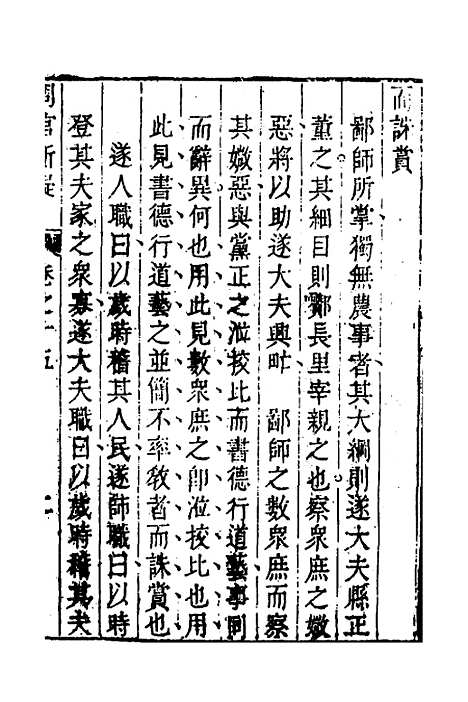 而誅賞
鄙師所掌獨無農事者其大綱則遂大夫縣正
董之其細目則鄰長里宰親之也察衆庶之媺
惡將以助遂大夫興甿　鄙師之數衆庶而察
其媺惡與黨正之涖挍比而書德行道藝事同
而辭異何也用此見數衆庶之卽涖挍比也用
此見書德行道藝之並簡不率敎者而誅賞也
遂人職曰以歲時稽其人民遂師職曰以時
登其夫家之衆寡遂大夫職曰以歲時稽其夫
周官析疑　卷之十五　二